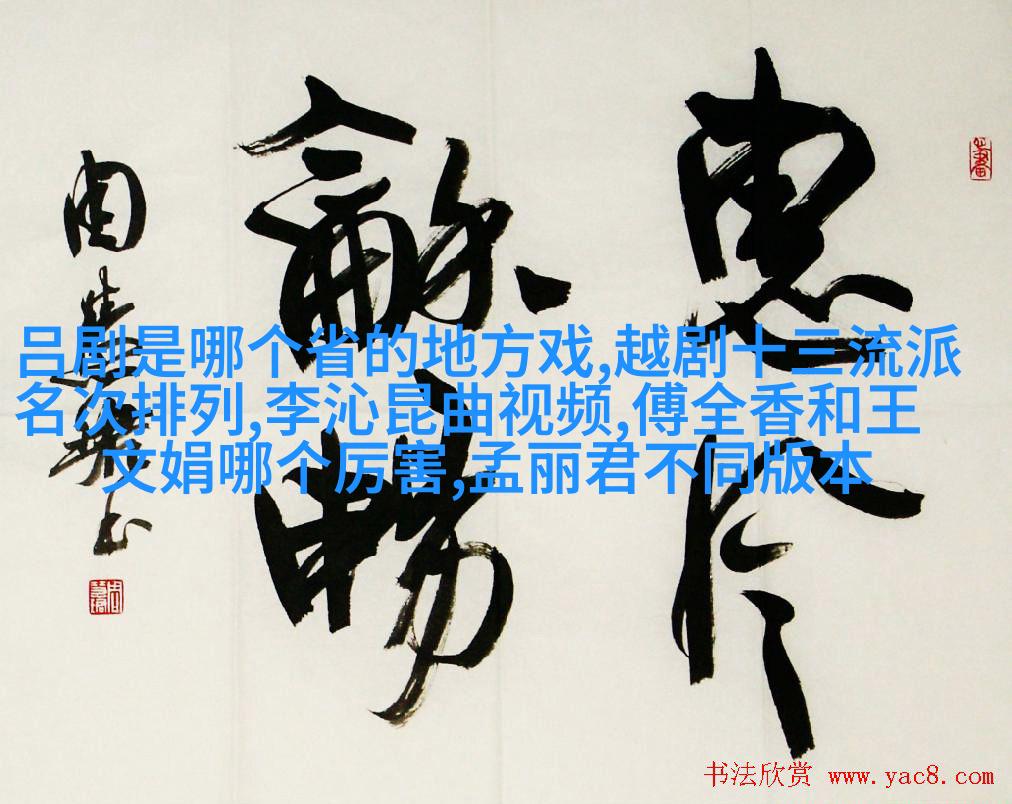 惠风
龢暢
周慧珺书
吕剧是哪个省的地方戏,越剧十三流派
名次排列,李沁昆曲视频,傅全香和王
文娟哪个厉害,孟丽君不同版本
书法欣赏 www.yac8.com